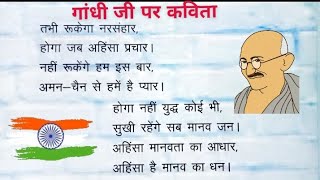 गांधी जी पर कविता
तभी रूकेगा नरसंहार,
होगा जब अहिंसा प्रचार।
नहीं रूकेंगे हम इस बार,
अमन–चैन से हमें है प्यार।
होगा नहीं युद्ध कोई भी,
सुखी रहेंगे सब मानव जन।
अहिंसा मानवता का आधार,
अहिंसा है मानव का धन।